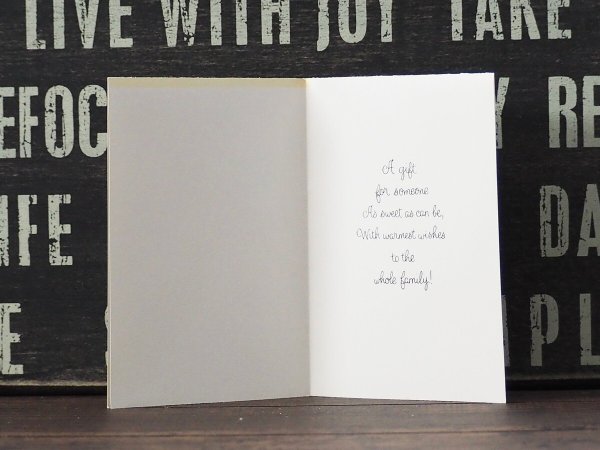 LIVE WITH JOY TAKE
EFOC
Y RE
IFE
DA
E
MPL
A gift
for someone
As sweet as can be,
With warmest wishes
to the
whole family!